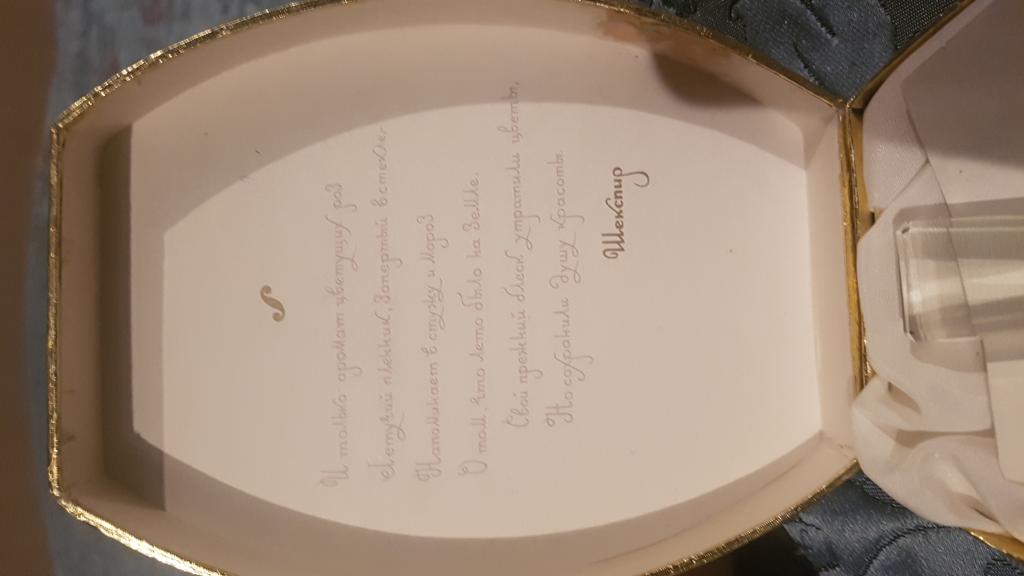 И только аромат цветущих роз
Летучий пленник, запертый в стекле.
Напоминает в стужу и мороз
О том, что лето было на земле.
Свой прежний блеск утратили цветы,
Но сохранили душу красоты.
Шекспир